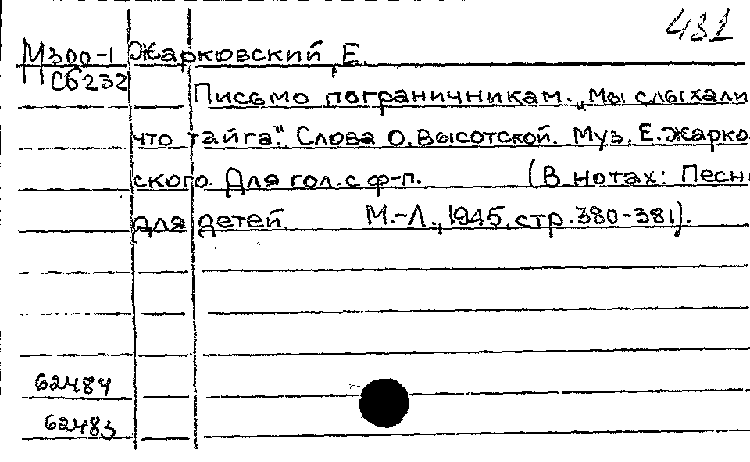 431
М300-1 Жарковский, Е.
Сб232
Письмо пограничникам. „Мы слыхали
что тайга". Слова О. Высотской. Муз. Е. Жарко
ского. Для гол. с ф-п. (В нотах: Песни
для детей М.-Л., 1945, стр. 380-381).
62484
62483